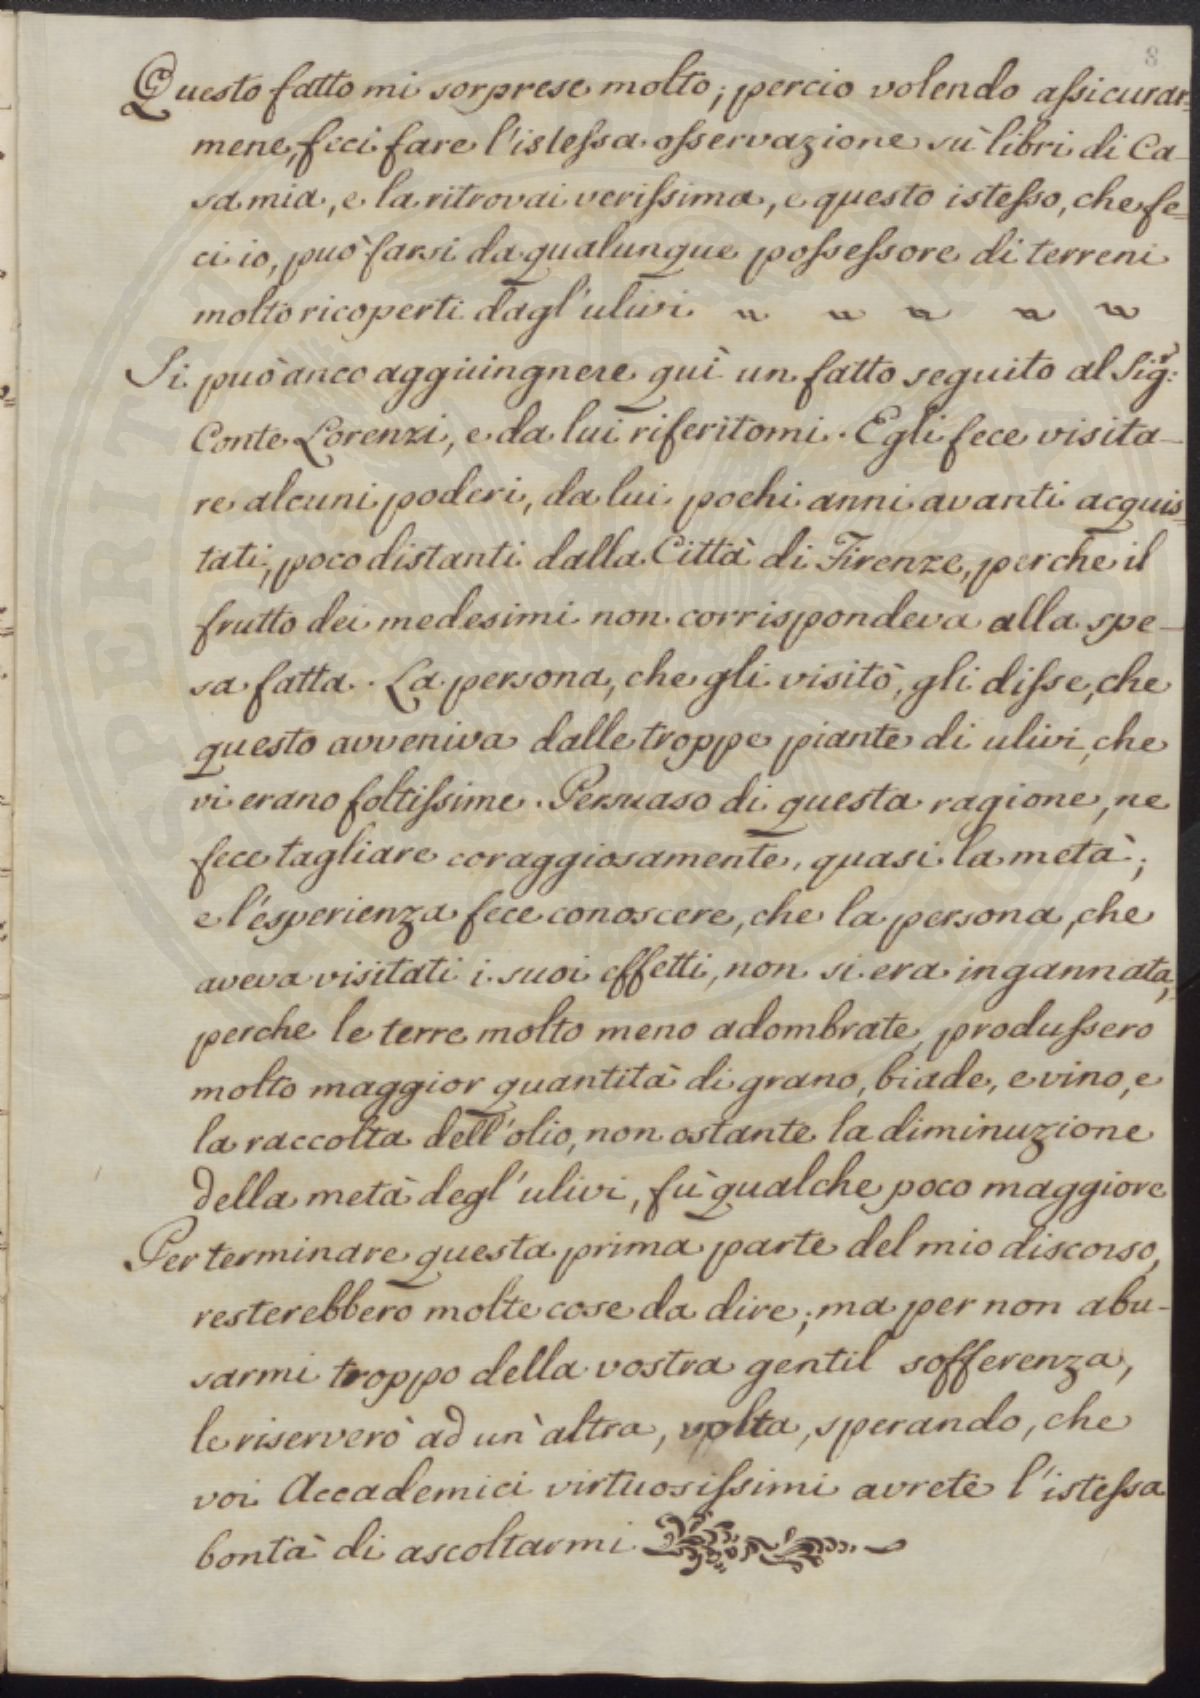 8
Questo fatto mi sorprese molto; percio volendo assicurar-
mene, feci fare l'istessa osservazione sù libri di Ca-
sa mia, e la ritrovai verissima, e questo istesso, che fe-
ci io, può farsi da qualunque possessore di terreni
molto ricoperti dagl'ulivi
Si può anco aggiuingnere quì un fatto seguito al Sigr:
Conte Lorenzi, e da lui riferitomi. Egli fece visita-
re alcuni poderi, da lui pochi anni avanti acquis-
tati, poco distanti dalla Città di Firenze, perche il
frutto dei medesimi non corrispondeva alla spe-
sa fatta. La persona, che gli visitò, gli disse, che
questo avveniva dalle troppe piante di ulivi, che
vi erano foltissime. Persuaso di questa ragione, ne
fece tagliare coraggiosamente, quasi la metà;
e l'esperienza fece conoscere, che la persona, che
aveva visitati i suoi effetti, non si era ingannata,
perche le terre molto meno adombrate, produssero
molto maggior quantità di grano, biade, e vino, e
la raccolta dell'olio, non ostante la diminuzione
della metà degl'ulivi, fù qualche poco maggiore
Per terminare questa prima parte del mio discorso,
resterebbero molte cose da dire; ma per non abu-
sarmi troppo della vostra gentil sofferenza,
le riserverò ad un'altra, volta, sperando, che
voi Accademici virtuosissimi avrete l'istessa
bontà di ascoltarmi